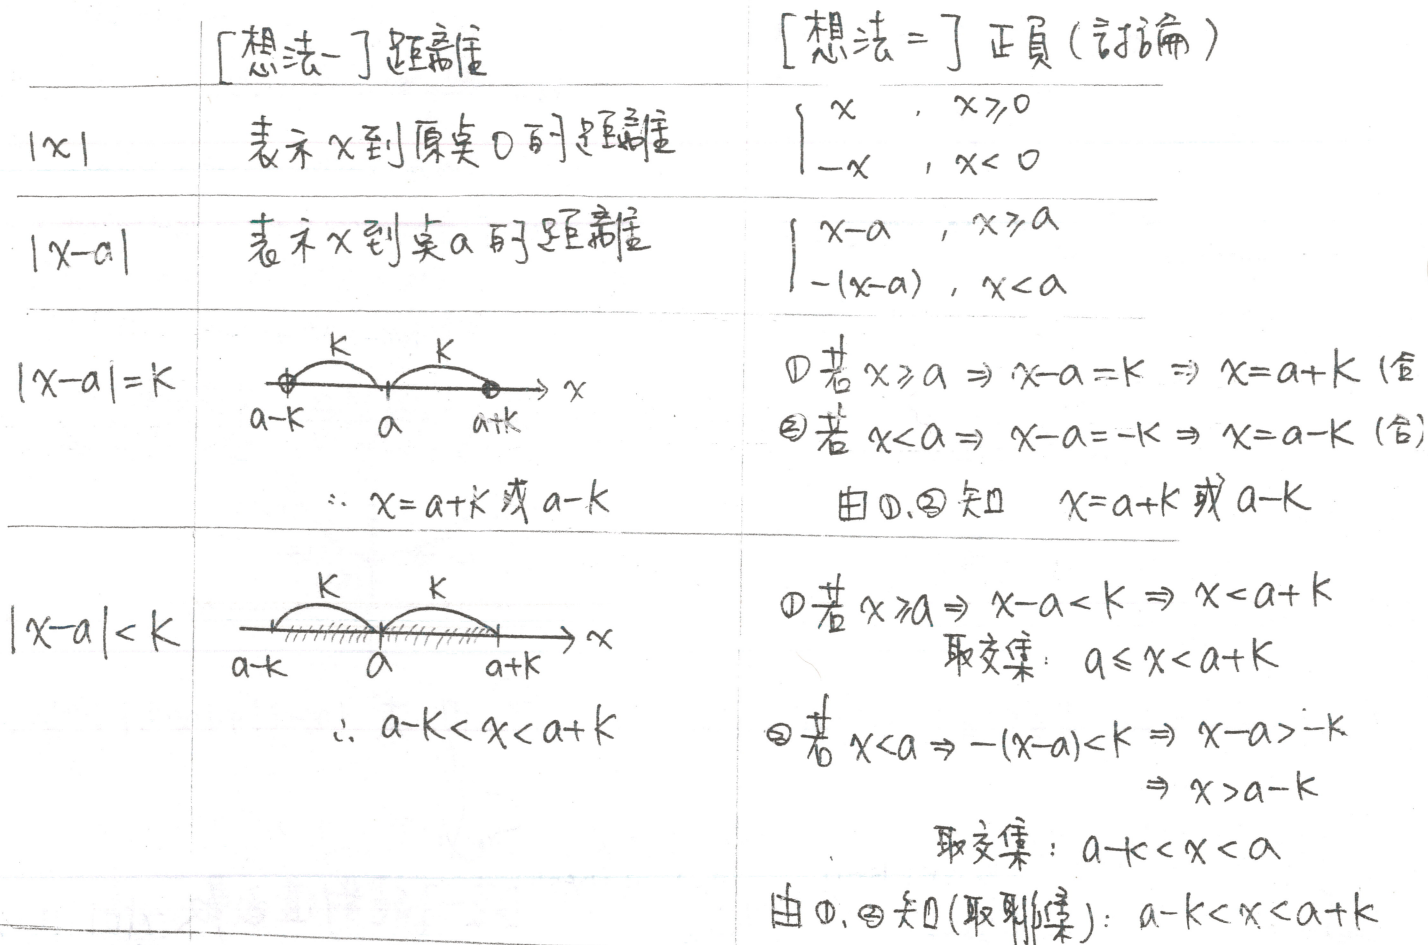 [想法一] 距離
[想法二] 正負(討論)
|x|
表示x到原点0的距離
x , x≥0
-x , x<0
|x-a|
表示x到点a的距離
x-a , x≥a
-(x-a) , x<a
|x-a|=k
k k
x
a-k a a+k
∴ x=a+k 或 a-k
① 若 x≥a ⇒ x-a=k ⇒ x=a+k (合
② 若 x<a ⇒ x-a=-k ⇒ x=a-k (合)
由①.②知 x=a+k 或 a-k
|x-a|<k
k k
x
a-k a a+k
∴ a-k<x<a+k
① 若 x≥a ⇒ x-a<k ⇒ x<a+k
取交集: a≤x<a+k
② 若 x<a ⇒ -(x-a)<k ⇒ x-a>-k
⇒ x>a-k
取交集: a-k<x<a
由①.②知(取聯集): a-k<x<a+k